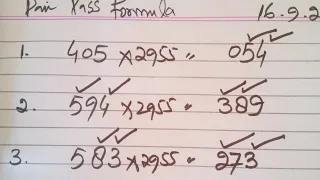 Pair Pass Formula 16.9.2
1. 405 × 2955 = 054
2. 594 × 2955 = 389
3. 583 × 2955 = 273